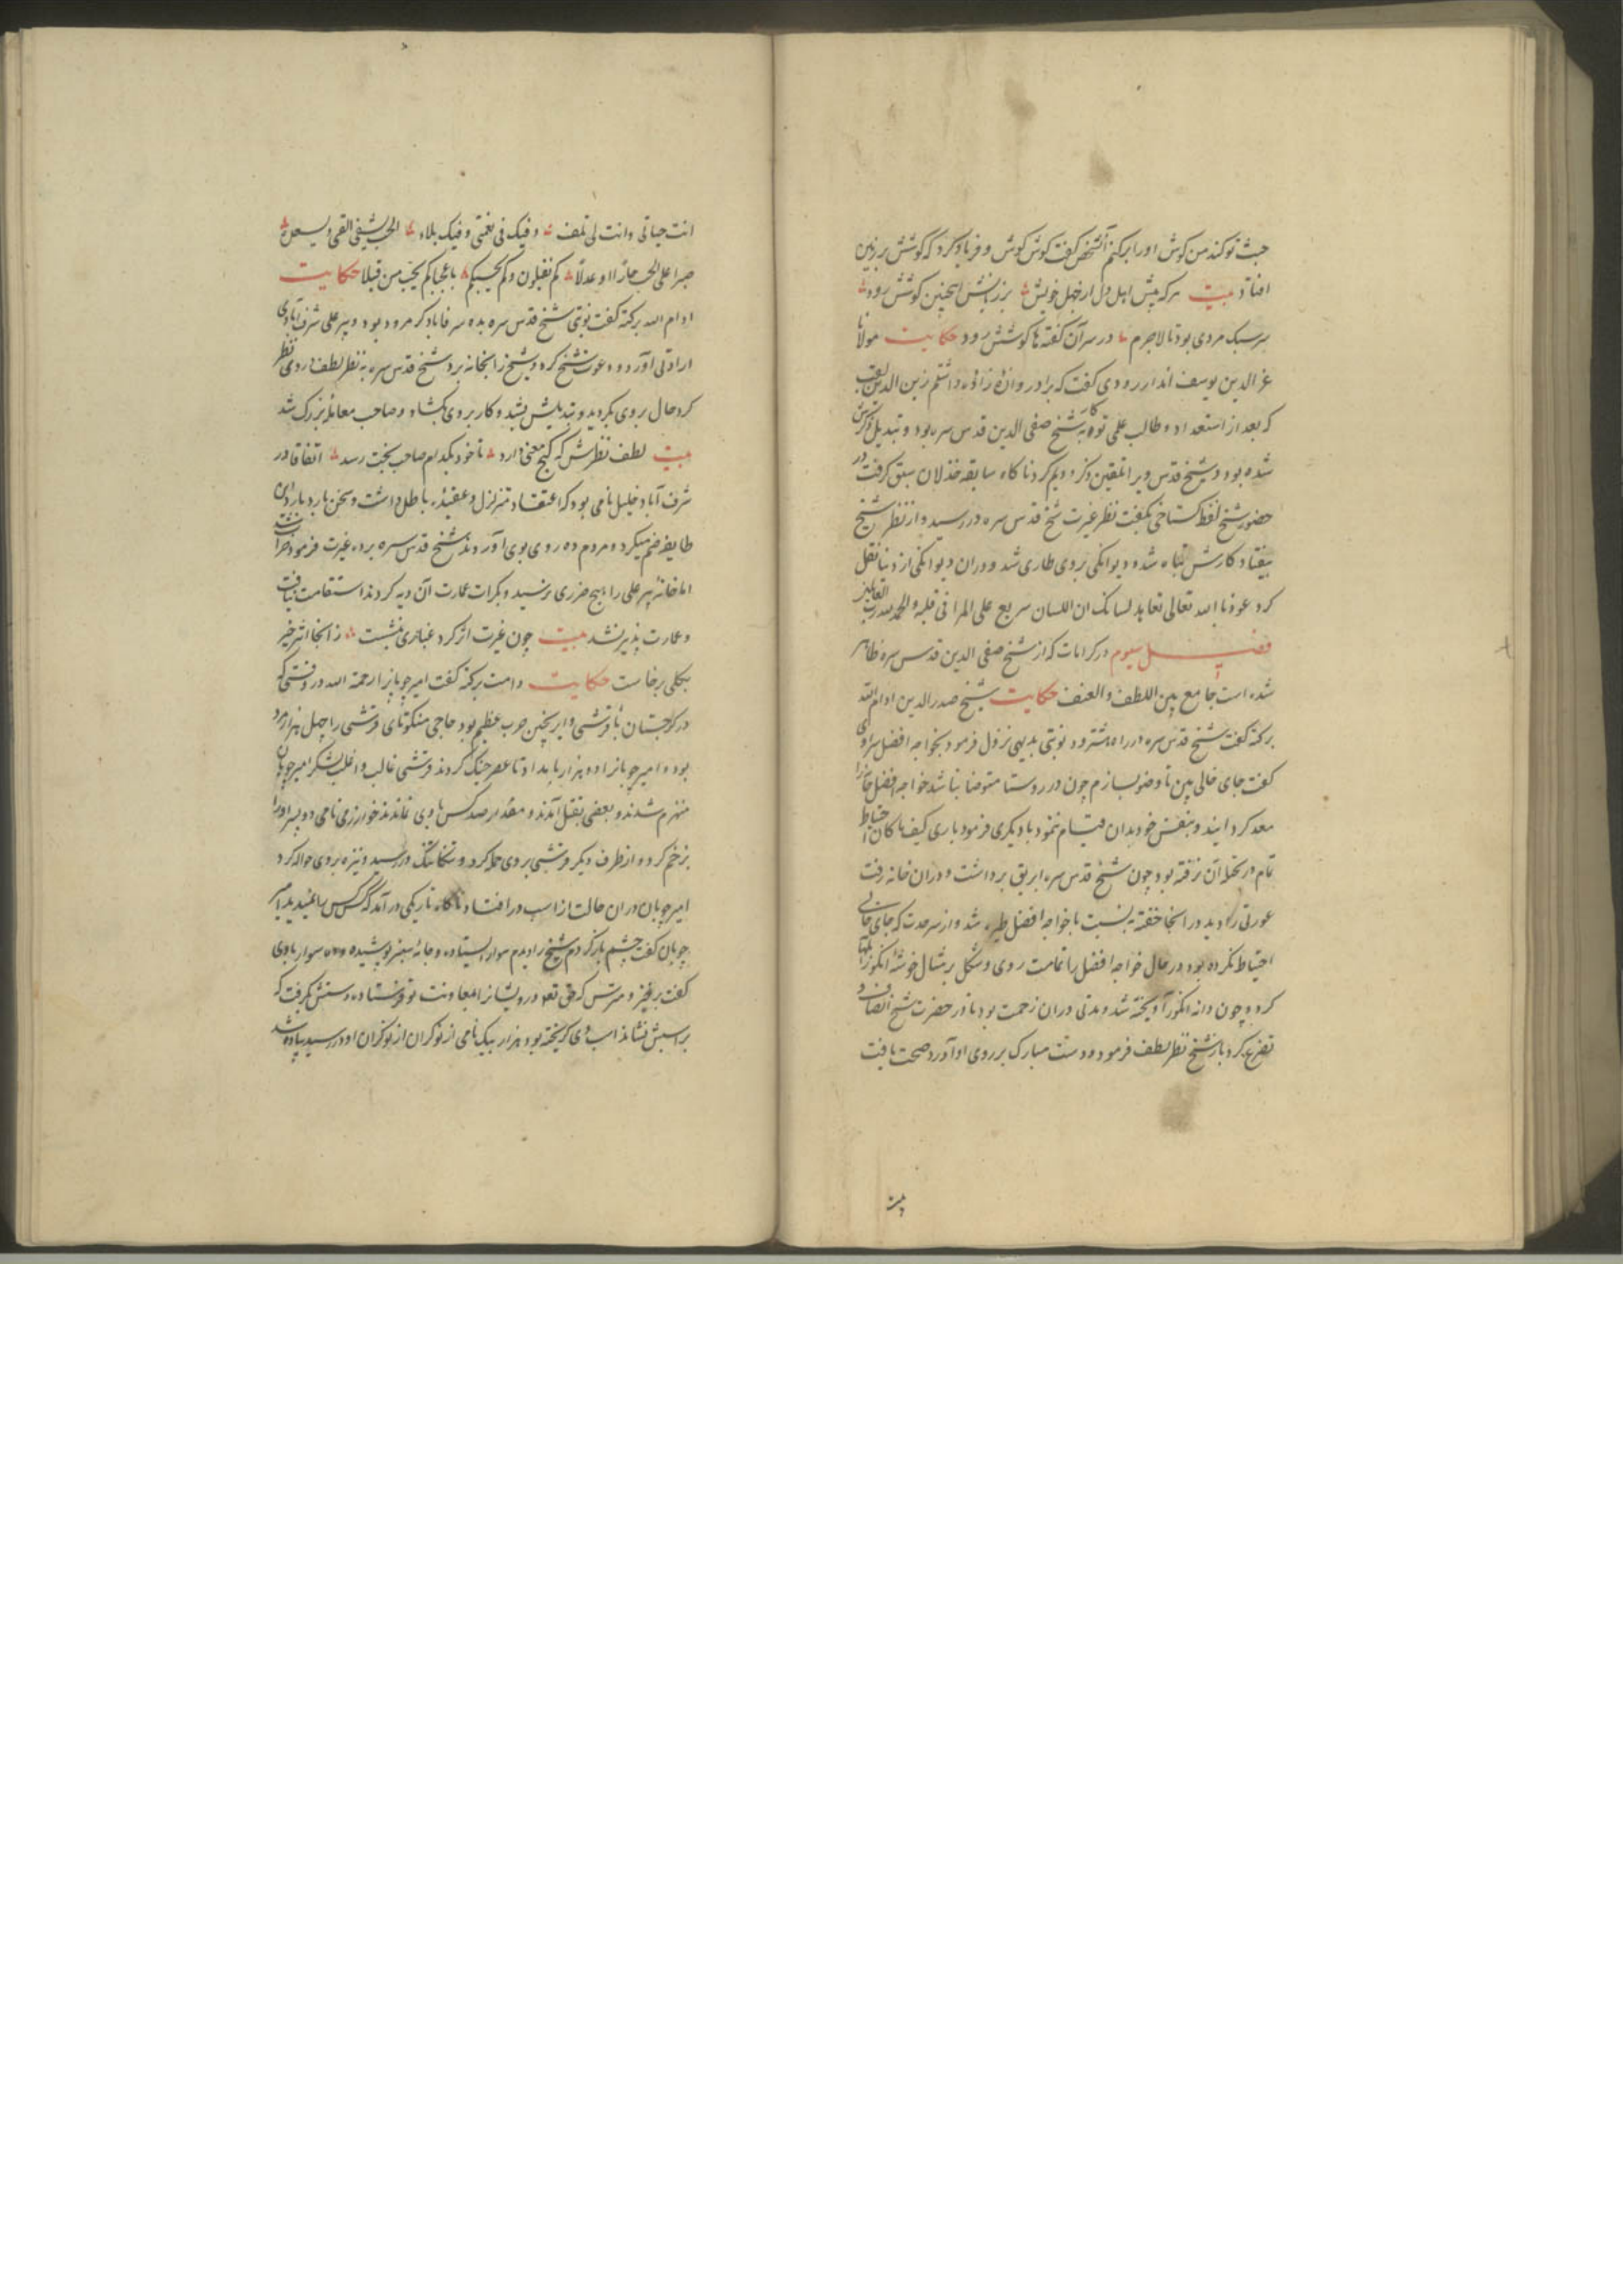 جبث تو کند من کوش او را برکنم آنشخص کفت کوش کوش و فریاد کرد که کوشش بر زمین
افتاد بیت هر که پیش اهل دل از جهل خویش بزرانیش اینچنین کوشش رود
بر سبک مردی بود تا لاجرم در سر آن کفته ها کوشش رود حکایت مولانا
عز الدین یوسف رودی کفت که برادر داشتم زین الدین لقب
که بعد از استعداد و طالب علمی توبه کار شیخ صفی الدین قدس سره بود و تبدیل
شده بود و شیخ قدس ویرا تلقین ذکر کرد ناکاه سابقه خذلان سبق کرفت در
حضور شیخ لفظ کستاخی بکفت نظر غیرت شیخ قدس سره در رسید و از نظر شیخ
بیفتاد کارش تباه شد و دیوانکی بروی طاری شد و دران دیوانکی از دنیا نقل
کرد عوذنا بالله تعالی تعاهد لسانک ان اللسان سریع علی المرء فی قتله والحمد لله رب العالمین
فصل سیوم در کرامات که از شیخ صفی الدین قدس سره ظاهر
شده است جامع بین اللطف والعنف حکایت شیخ صدر الدین ادام الله
برکته کفت شیخ قدس سره در راه نوبتی بدیهی نزول فرمود بخواجه افضل سراوی
کفت جای خالی بین تا وضو بسازم چون در روستا متوضا نباشد خواجه افضل
معد کردانیند و بنفس خود بدان قیام ننمود با دیکری فرمود باری کیف ما کان احتیاط
تمام در تخلیه آن نرفته بود چون شیخ قدس سره ابریق برداشت و دران خانه رفت
عورتی را دید در آنجا خفته بنسبت با خواجه افضل طیره شد و از سر حدت که جای خالی
احتیاط نکرده بود در حال خواجه افضل را تمامت روی و شکل بر مثال خوشه انکور
کرد و چون دانه انکور آویخته شد و مدتی دران زحمت بود تا در حضرت شیخ
تضرع کرد باز شیخ نظر لطف فرمود و دست مبارک بر روی او آورد صحت یافت
بیت
انت حیاتی وانت لی تلف وفیک فی نعمتی وفیک بلاء الحب یشفی الفتی ویسعله
صبرا علی الحب جار او عدلا کم تقتلون وکم یحبکم یا عجبا کم یحب من قتلا حکایت
ادام الله برکته کفت نوبتی شیخ قدس سره بده شرفاباد کرمرود بود و پیر علی شرف آبادی
ارادتی آورد و دعوت شیخ کرد و شیخ را بخانه برد شیخ قدس سره به نظر لطف در وی نظر
کرد حال بر وی بکردید و تبدیلش بشد و کار بر وی بکشاد و صاحب معامله بزرک شد
بیت لطف نظرش که کنج معنی دارد تا خود بکدام صاحب بخت رسد اتفاقا در
شرف آباد خلیل نامی بود که اعتقاد متزلزل و عقیده باطل داشت و سخن بارد باردی
طایفه ضم میکرد و مردم ده روی بوی آوردند شیخ قدس سره برده غیرت فرمود خراب شد
اما خانه پیر علی را هیچ ضرری نرسید و بکرات عمارت آن دیه کردند استقامت نیافت
و عمارت پذیر نشد بیت چون غیرت از کرد غباری بنشست ز آنجا اثر خیر
بکلی برخاست حکایت دامت برکته کفت امیر چوبانرا رحمة الله در وقتی که
در کرجستان با قرشی و ایرنجین حرب عظیم بود حاجی منکوتای قرشی را چهل هزار مرد
بود و امیر چوبانرا ده هزار بامداد تا عصر جنک کردند قرشی غالب و اغلب لشکر امیر چوبان
منهزم شدند و بعضی بقتل آمدند و مقدار صد کس با وی نماندند خوارزمی نامی دو پسر او را
بزخم کرد و از طرف دیکر قرشی بر وی حمله کرد و تنکاتنک در رسید و نیزه بر وی حواله کرد
امیر چوبان دران حالت از اسب در افتاد ناکاه تاریکی در آمد که کس کس را نمیدید امیر
چوبان کفت چشم باز کردم شیخ را دیدم سوار ایستاده و جامه سبز پوشیده و ده سوار با وی
کفت برخیز و مترس که حق تعالی درویشانرا بمعاونت تو فرستاده دستش بکرفت که
بر اسبش نشاند اسب وی کریخته بود هزار بیک نامی از نوکران از نوکران او در رسید پیاده شد